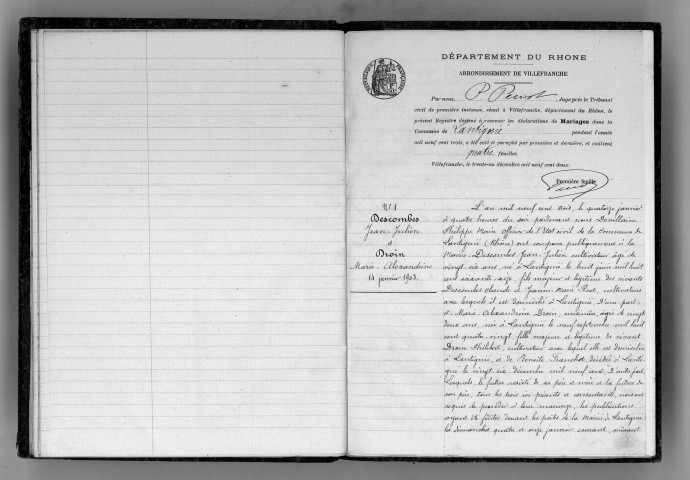 DÉPARTEMENT DU RHONE
ARRONDISSEMENT DE VILLEFRANCHE
Par nous, P. Perrot, Juge près le Tribunal
civil de première instance, séant à Villefranche, département du Rhône, le
présent Registre destiné à recevoir les déclarations de Mariages dans la
Commune de Lantignié pendant l'année
mil neuf cent trois, a été coté et paraphé par première et dernière, et contient
quatre feuilles.
Villefranche, le trente-un décembre mil neuf cent deux.
Première feuille
N° 1
Descombes
Jean-Julien
&
Droin
Marie-Alexandrine
14 janvier 1903.
L'an mil neuf cent trois, le quatorze janvier
à quatre heures du soir pardevant nous Devillaine
Philippe Marie officier de l'Etat civil de la commune de
Lantignié (Rhône) ont comparu publiquement à la
Mairie Descombes Jean-Julien cultivateur âgé de
vingt six ans, né à Lantignié le huit juin mil huit
cent soixante-seize, fils majeur et légitime des vivants
Descombes Claude & Jeanne-Marie cultivateurs
avec lesquels il est domicilié à Lantignié, D'une part
& Marie-Alexandrine Droin, âgée de vingt
deux ans, née à Lantignié le neuf septembre mil huit
cent quatre-vingt, fille majeure et légitime de vivant
Droin Philibert, cultivateur avec lequel elle est domiciliée
à Lantignié, et de Benoîte décédée à Lanti
gnié le vingt six décembre mil neuf cent D'autre part.
Lesquels, le futur assisté de ses père et mère et la future de
son père, tous les trois ici présents et consentants, nous ont
requis de procéder à leur mariage, les publications
ayant été faites devant la porte de la Mairie de Lantignié
les dimanches quatre et onze janvier courant, suivant